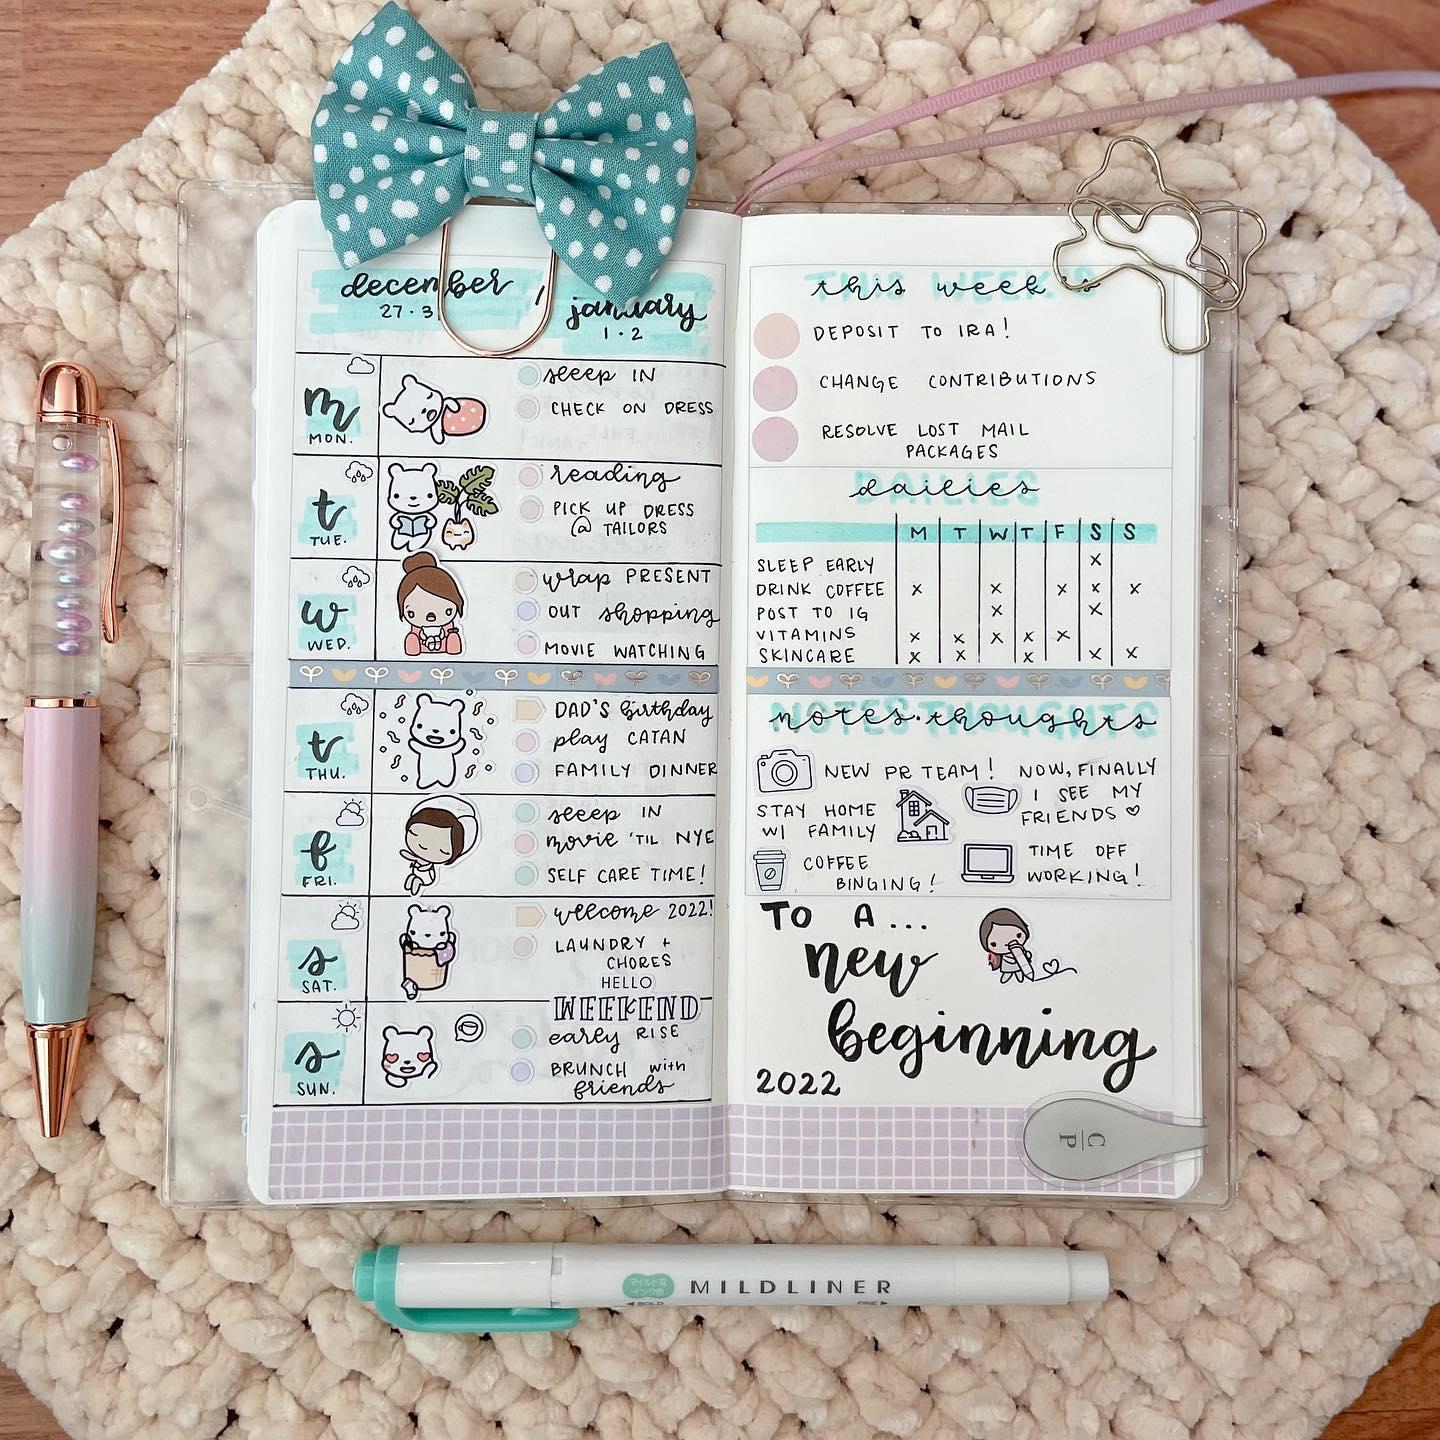 december /
27 · 3
january
1 · 2
m
MON.
sleep IN
CHECK ON DRESS
t
TUE.
reading
PICK UP DRESS
@ TAILORS
w
WED.
wrap PRESENT
OUT shopping
MOVIE WATCHING
t
THU.
DAD'S birthday
play CATAN
FAMILY DINNER
f
FRI.
sleep IN
movie 'TIL NYE
SELF CARE TIME!
s
SAT.
welcome 2022!
LAUNDRY +
CHORES
HELLO
WEEKEND
s
SUN.
early RISE
BRUNCH with
friends
THIS WEEK
this week
DEPOSIT TO IRA!
CHANGE CONTRIBUTIONS
RESOLVE LOST MAIL
PACKAGES
DAILIES
dailies
M T W T F S S
SLEEP EARLY x
DRINK COFFEE x x x x x
POST TO IG x x
VITAMINS x x x x x
SKINCARE x x x x x
NOTES THOUGHTS
notes · thoughts
NEW PR TEAM!
NOW, FINALLY
I SEE MY
FRIENDS ♡
STAY HOME
W/ FAMILY
COFFEE
BINGING!
TIME OFF
WORKING!
TO A...
new
beginning
2022
C
P
マイルドな
インク色
MILDLINER
◀ BOLD
FINE ▶